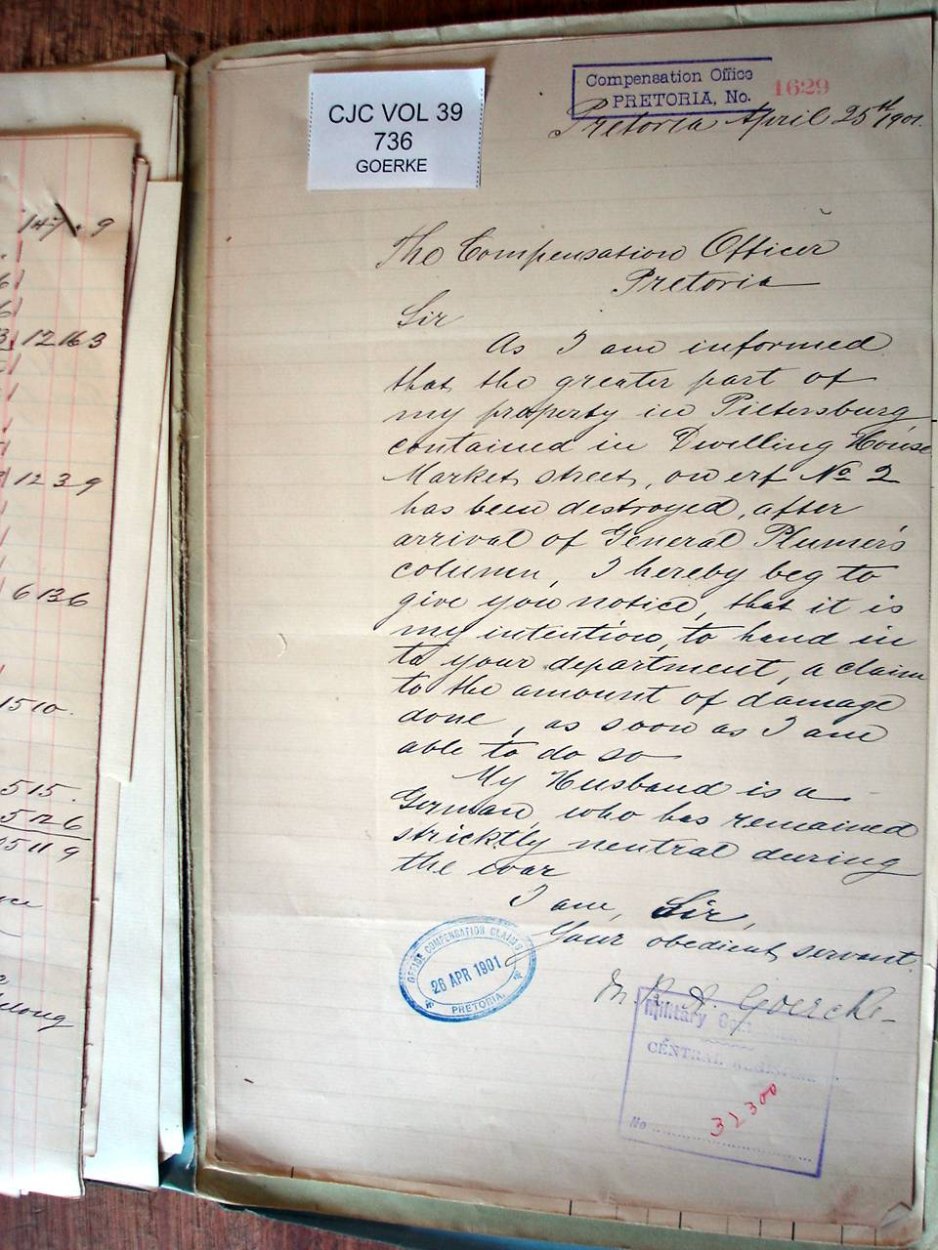 147.9
12163
1239
636
1510.
515.
CJC VOL 39
736
GOERKE
Compensation Office
PRETORIA, No. 1629
Pretoria April 25th 1901.
The Compensation Officer
Pretoria
Sir
As I am informed
that the greater part of
my property in Pietersburg,
contained in Dwelling House
Market street, on erf No 2
has been destroyed, after
arrival of General Plumer's
column, I hereby beg to
give you notice, that it is
my intention, to hand in
to your department, a claim
to the amount of damage
done, as soon as I am
able to do so
My Husband is a
German, who has remained
stricktly neutral during
the war
I am, Sir,
Your obedient servant.
Goercke
OFFICE COMPENSATION CLAIMS
26 APR 1901
PRETORIA.
Military
CENTRAL
No 32300